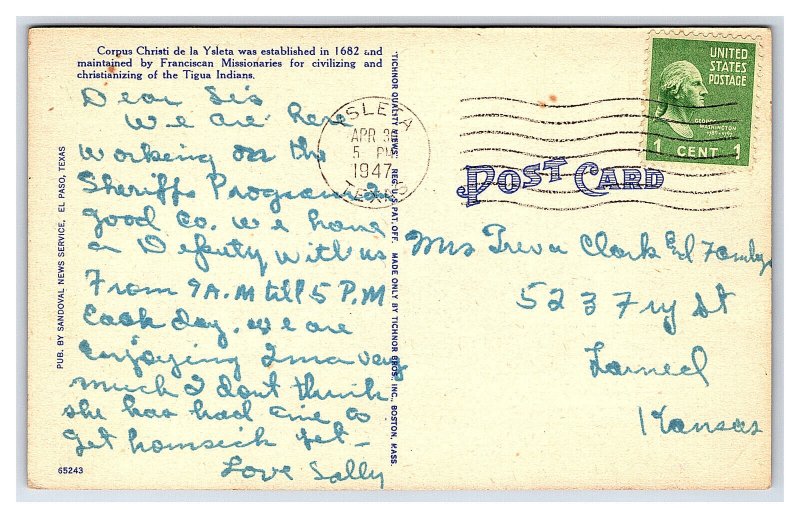 Corpus Christi de la Ysleta was established in 1682 and
maintained by Franciscan Missionaries for civilizing and
christianizing of the Tigua Indians.
Dear Sis
We are here
working on the
Sheriffs Program in
good Co. We have
a Deputy with us
From 9 A.M till 5 P.M
Each day. We are
enjoying Ima very
much I dont think
she has had time to
get homsick yet -
Love Sally
65243
PUB. BY SANDOVAL NEWS SERVICE, EL PASO, TEXAS
"TICHNOR QUALITY VIEWS," REG. U.S. PAT. OFF. MADE ONLY BY TICHNOR BROS., INC., BOSTON, MASS.
YSLETA
APR 30
5 PM
1947
TEXAS
UNITED
STATES
POSTAGE
GEORGE
WASHINGTON
1789-1797
1 CENT 1
POST CARD
Mrs Treva Clark And Family
523 Fry St
Larned
Kansas